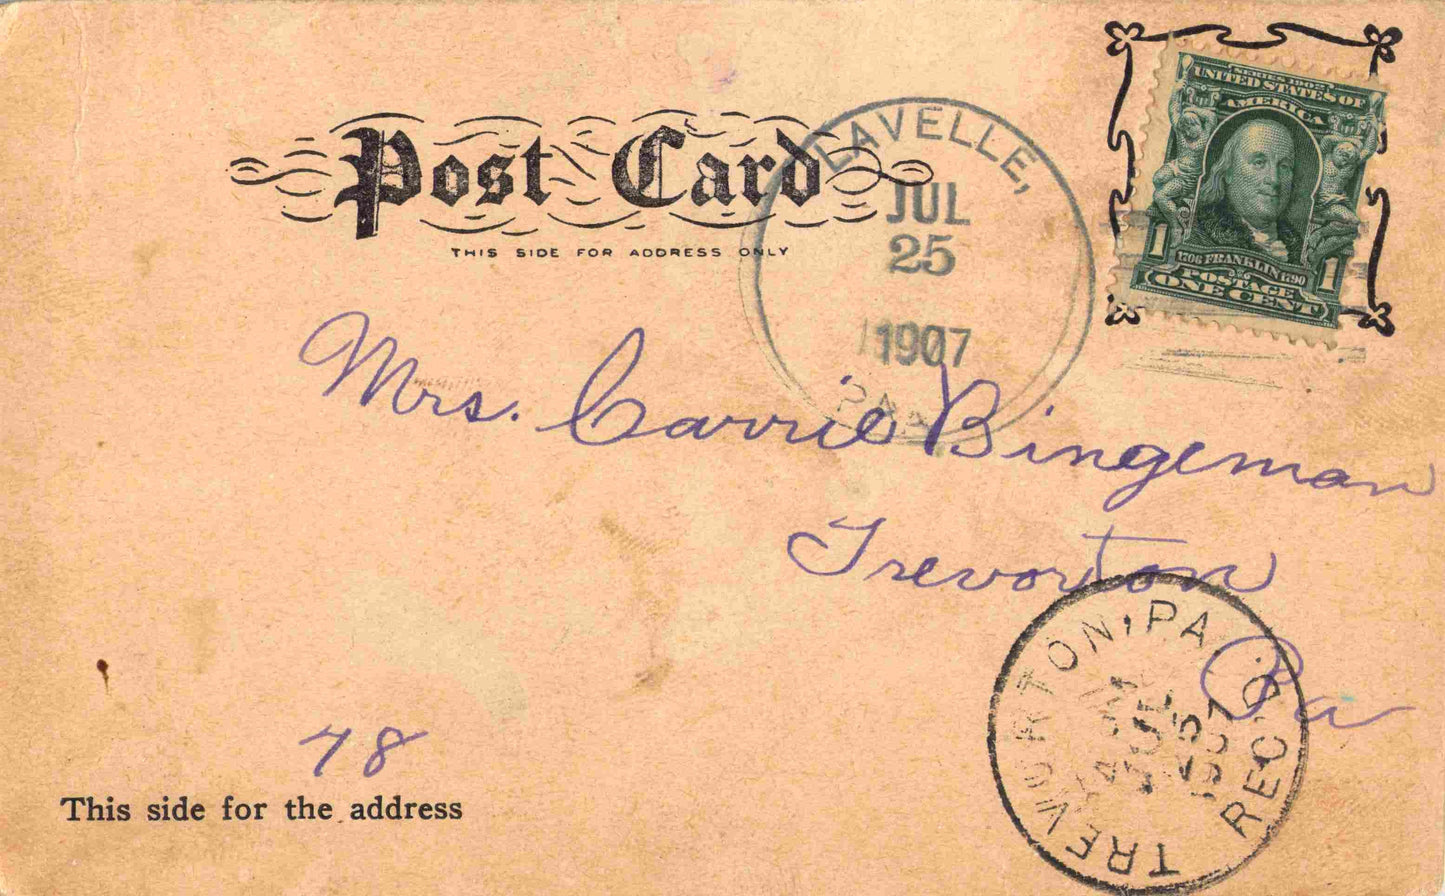 Post Card
THIS SIDE FOR ADDRESS ONLY
LAVELLE,
JUL
25
1907
PA.
SERIES 1902
UNITED STATES OF
AMERICA
1706 FRANKLIN 1790
1 1
POSTAGE
ONE CENT
Mrs. Carrie Bingeman
Trevorton
Pa
TREVORTON, PA.
REC'D
AM
JUL
25
1907
78
This side for the address